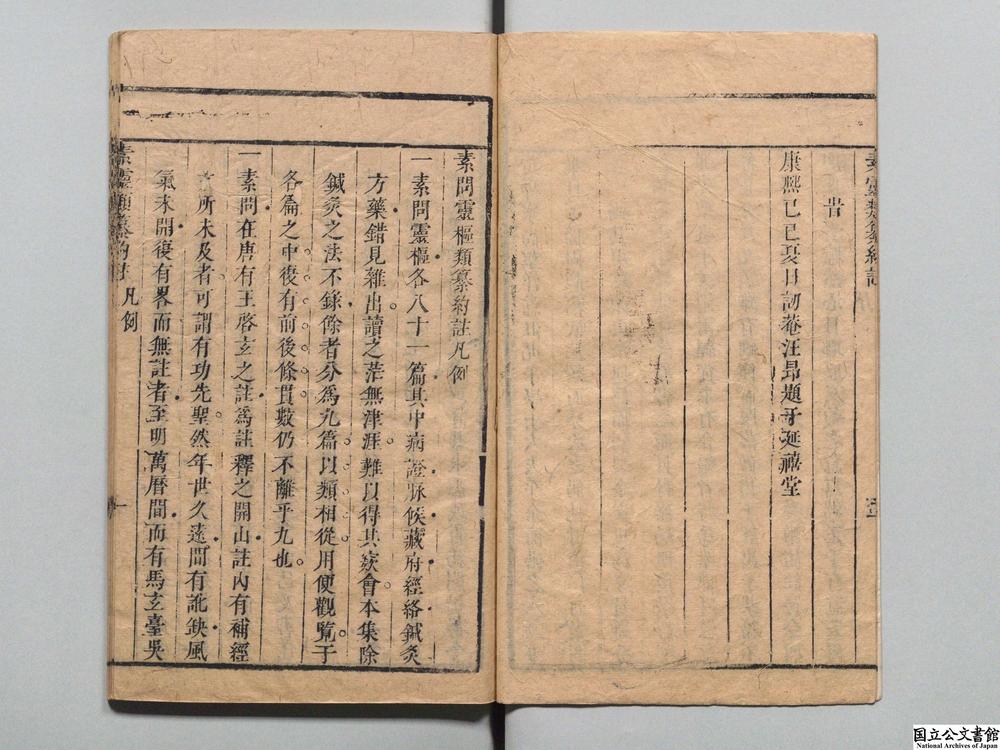 旹
康熙己巳夏日訒菴汪昂題于延禧堂
素問靈樞類纂約註凡例
一素問靈樞各八十一篇其中病證脉候藏府經絡鍼灸
方藥錯見雜出讀之茫無津涯難以得其窾會本集除
鍼灸之法不錄餘者分爲九篇以類相從用便觀覽于
各篇之中復有前後條貫數仍不離乎九也
一素問在唐有王啓玄之註爲註釋之開山註內有補經
所未及者可謂有功先聖然年世久遠間有訛缺風
氣未開復有畧而無註者至明萬曆間而有馬玄臺吳
素靈類纂約註 凡例 一
国立公文書館
National Archives of Japan